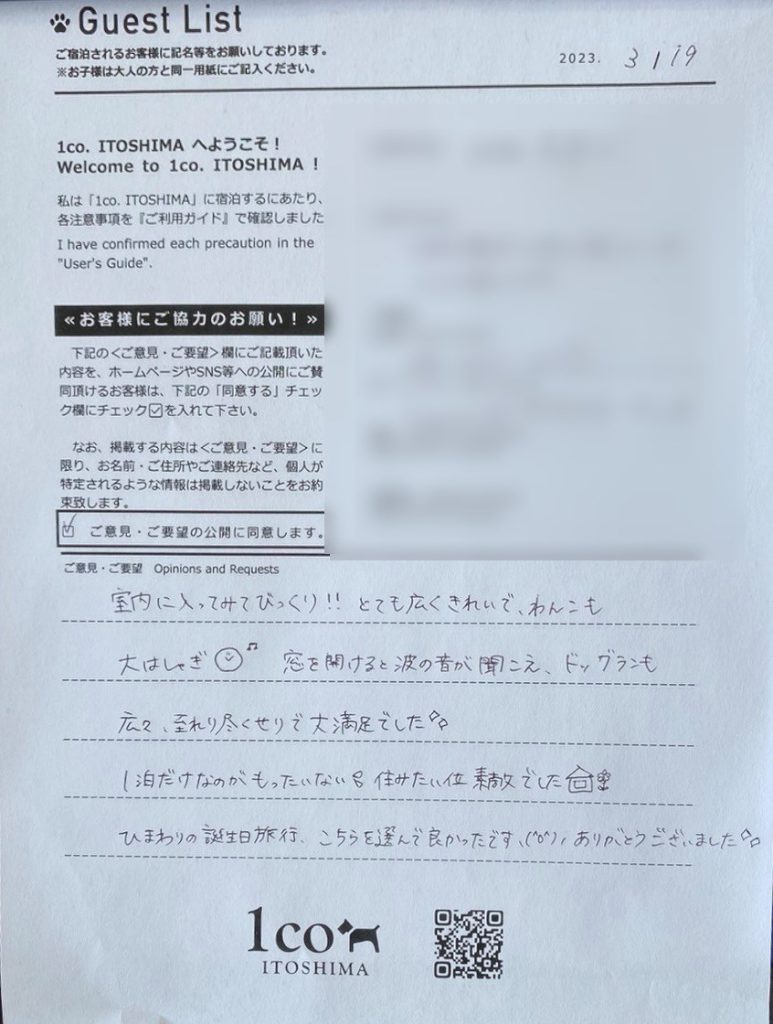 Guest List
ご宿泊されるお客様に記名等をお願いしております。
※お子様は大人の方と同一用紙にご記入ください。
2023. 3 / 19
1co. ITOSHIMA へようこそ！
Welcome to 1co. ITOSHIMA !
私は「1co. ITOSHIMA」に宿泊するにあたり、
各注意事項を『ご利用ガイド』で確認しました
I have confirmed each precaution in the
"User's Guide".
≪お客様にご協力のお願い！≫
下記の<ご意見・ご要望>欄にご記載頂いた
内容を、ホームページやSNS等への公開にご賛
同頂けるお客様は、下記の「同意する」チェッ
ク欄にチェック☑を入れて下さい。
なお、掲載する内容は<ご意見・ご要望>に
限り、お名前・ご住所やご連絡先など、個人が
特定されるような情報は掲載しないことをお約
束致します。
☑ ご意見・ご要望の公開に同意します。
ご意見・ご要望 Opinions and Requests
室内に入ってみてびっくり!! とても広くきれいで、わんこも
大はしゃぎ♫ 窓を開けると波の音が聞こえ、ドッグランも
広々、至れり尽くせりで大満足でした
1泊だけなのがもったいない 住みたい位素敵でした
ひまわりの誕生日旅行、こちらを選んで良かったです、(^o^)ﾉ ありがとうございました
1co
ITOSHIMA